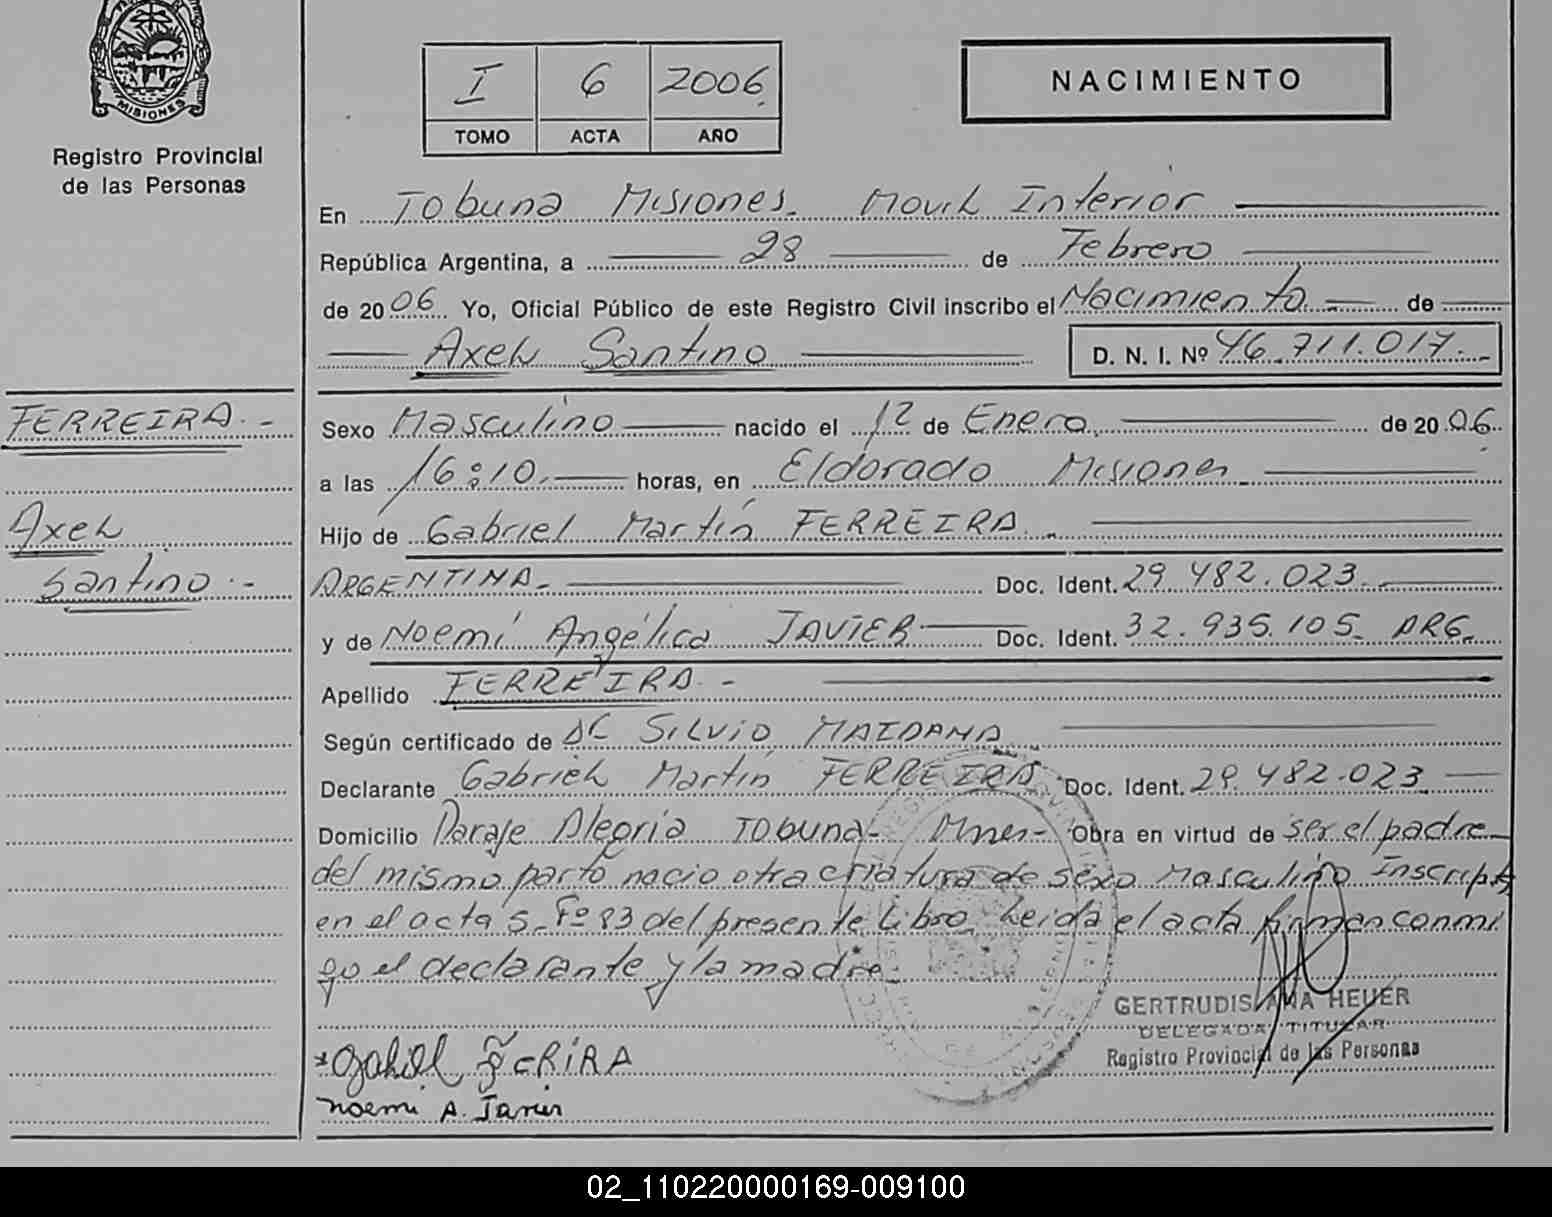 MISIONES
Registro Provincial
de las Personas
I 6 2006
TOMO ACTA AÑO
NACIMIENTO
En Tobuna Misiones. Movil Interior
República Argentina, a 28 de Febrero
de 2006 Yo, Oficial Público de este Registro Civil inscribo el Nacimiento de
Axel Santino D. N. I. Nº 46.711.017.-
FERREIRA.-
Axel
Santino.-
Sexo Masculino nacido el 12 de Enero de 2006.
a las 16:10. horas, en Eldorado Misiones.
Hijo de Gabriel Martín FERREIRA.
ARGENTINA. Doc. Ident. 29.482.023.
y de Noemí Angélica JAVIER Doc. Ident. 32.935.105. ARG.
Apellido FERREIRA.-
Según certificado de DC SILVIO MAIDANA
Declarante Gabriel Martín FERREIRA Doc. Ident. 29.482.023
Domicilio Paraje Alegria Tobuna- Mnes- Obra en virtud de ser el padre
del mismo parto nacio otra criatura de sexo Masculino Inscripta
en el acta 5. Fº 83 del presente Libro. Leida el acta firman conmi
go el declarante y la madre.
GERTRUDIS ANA HEUER
DELEGADA TITULAR
Registro Provincial de las Personas
Noemi A. Javier
02_110220000169-009100